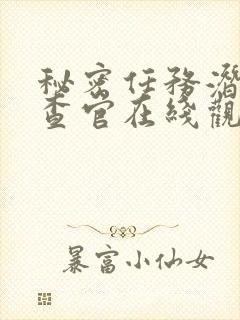 秘密任务潛
查官在綫觀
暴富小仙女